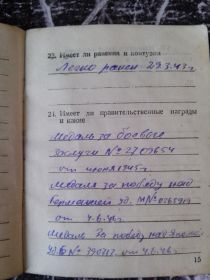 23. Имеет ли ранения и контузии
Легко ранен 29.3.43 г.
24. Имеет ли правительственные награды
и какие
медаль за боевые
заслуги № 2709654
от июня 1945 г.
медаль за победу над
Германией уд.
от 4.6.46 г.
медаль за победу над Японией
уд. № 390313 от 4.6.46 г.
15